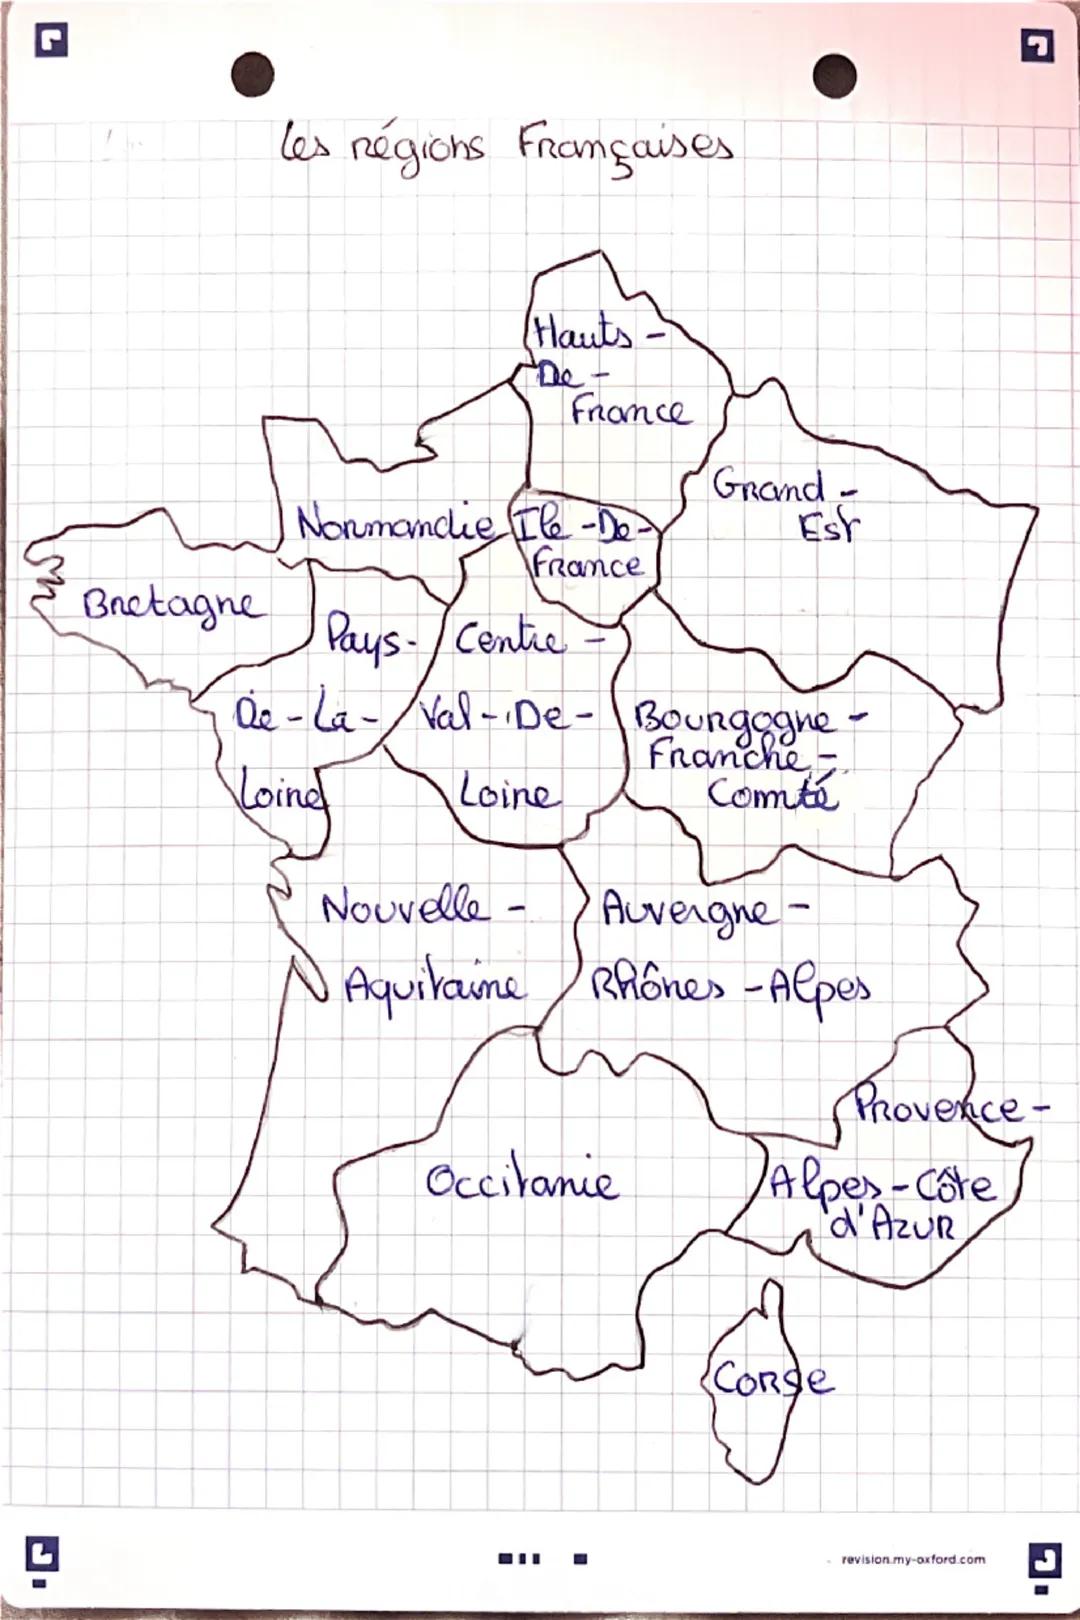 Les régions Françaises
Hauts -
De -
France
Grand -
Est
Normandie
Ile - De -
France
Bretagne
Pays -
De - La -
Loire
Centre -
Val - De -
Loire
Bourgogne -
Franche -
Comté
Nouvelle -
Aquitaine
Auvergne -
Rhônes - Alpes
Provence -
Alpes - Côte
d'Azur
Occitanie
Corse
revision.my-oxford.com